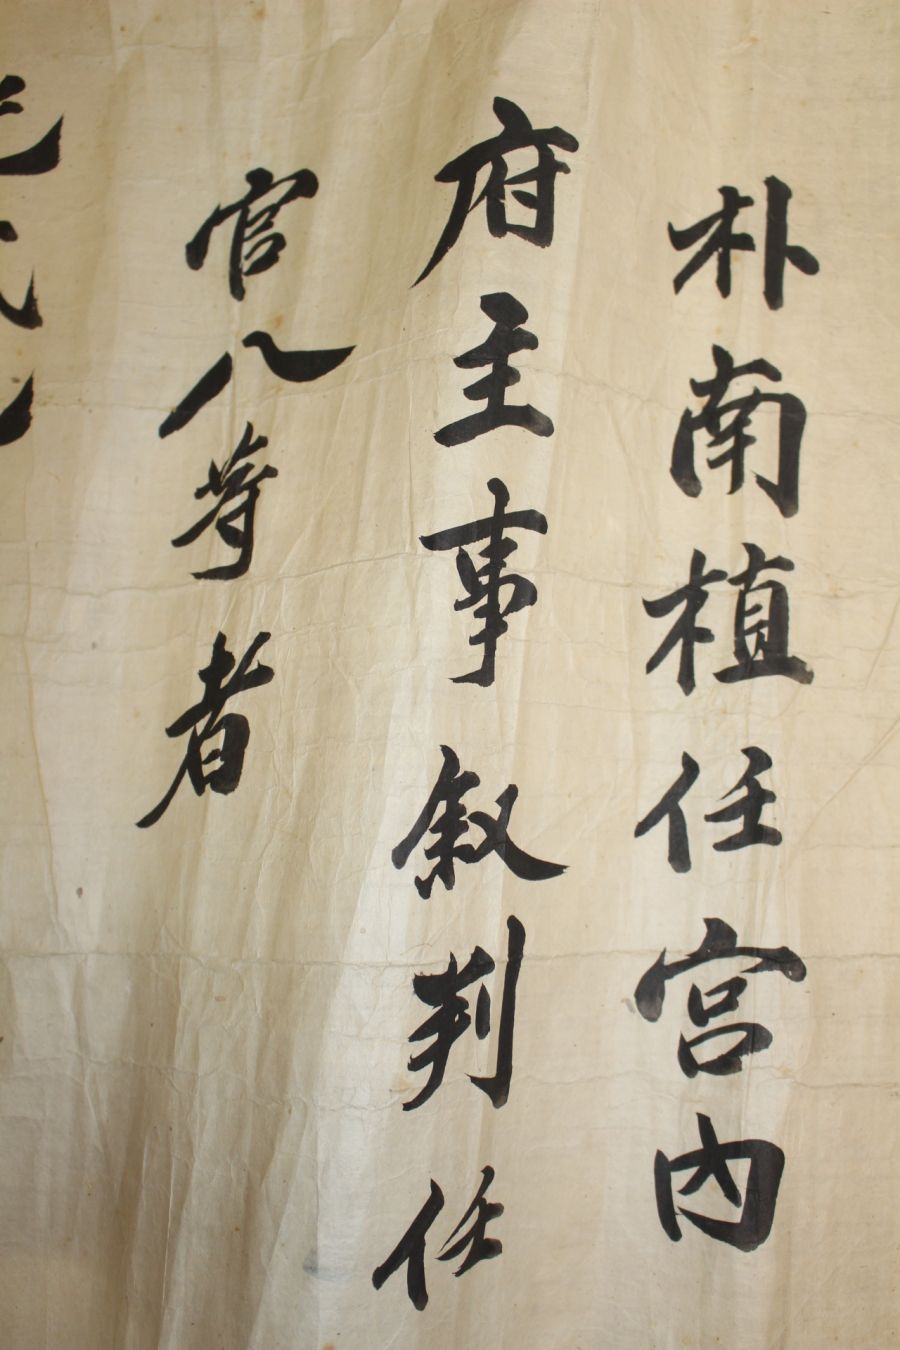 朴南植任宮内
府主事叙判任
官八等者